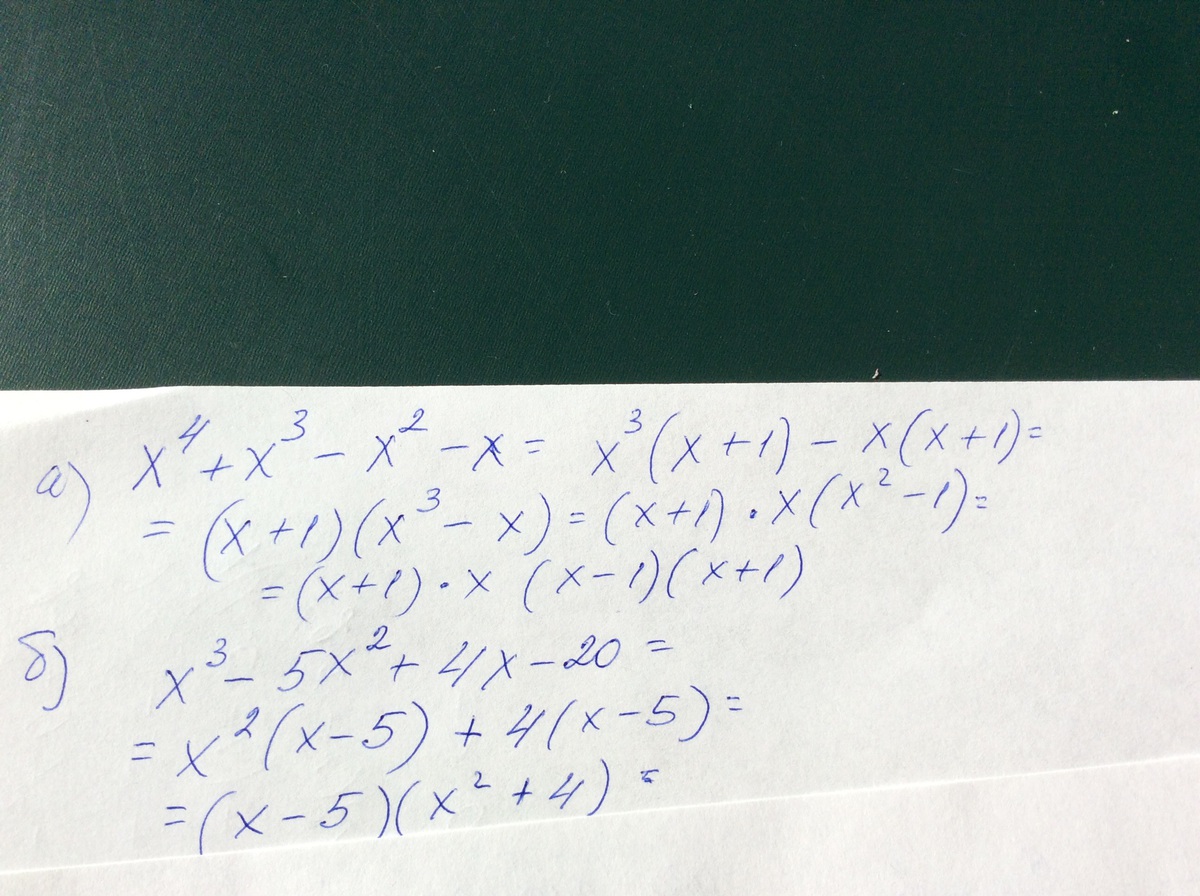 а) x⁴ + x³ − x² − x = x³(x + 1) − x(x + 1) =
= (x + 1)(x³ − x) = (x + 1) · x(x² − 1) =
= (x + 1) · x (x − 1)(x + 1)
б) x³ − 5x² + 4x − 20 =
= x²(x − 5) + 4(x − 5) =
= (x − 5)(x² + 4) =